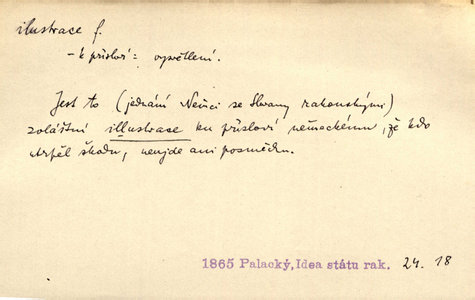 ilustrace f.
– k přísloví = vysvětlení.
Jest to (jednání Němců se Slovany rakouskými)
zvláštní illustrace ku přísloví německému, že kdo
utrpěl škodu, neujde ani posměchu.
1865 Palacký, Idea státu rak. 24. 18